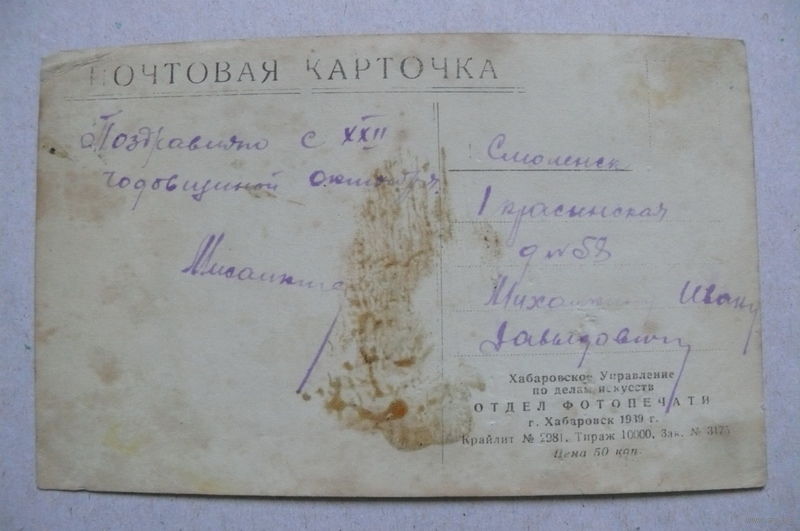 ПОЧТОВАЯ КАРТОЧКА
Поздравляю с XXII
годовщиной октября
Смоленск
1 красинская
д № 58
Ивану
Давыдовичу
Хабаровское Управление
по делам искусств
ОТДЕЛ ФОТОПЕЧАТИ
г. Хабаровск 1939 г.
Крайлит № 2981. Тираж 10000. Зак. № 3175
Цена 50 коп.